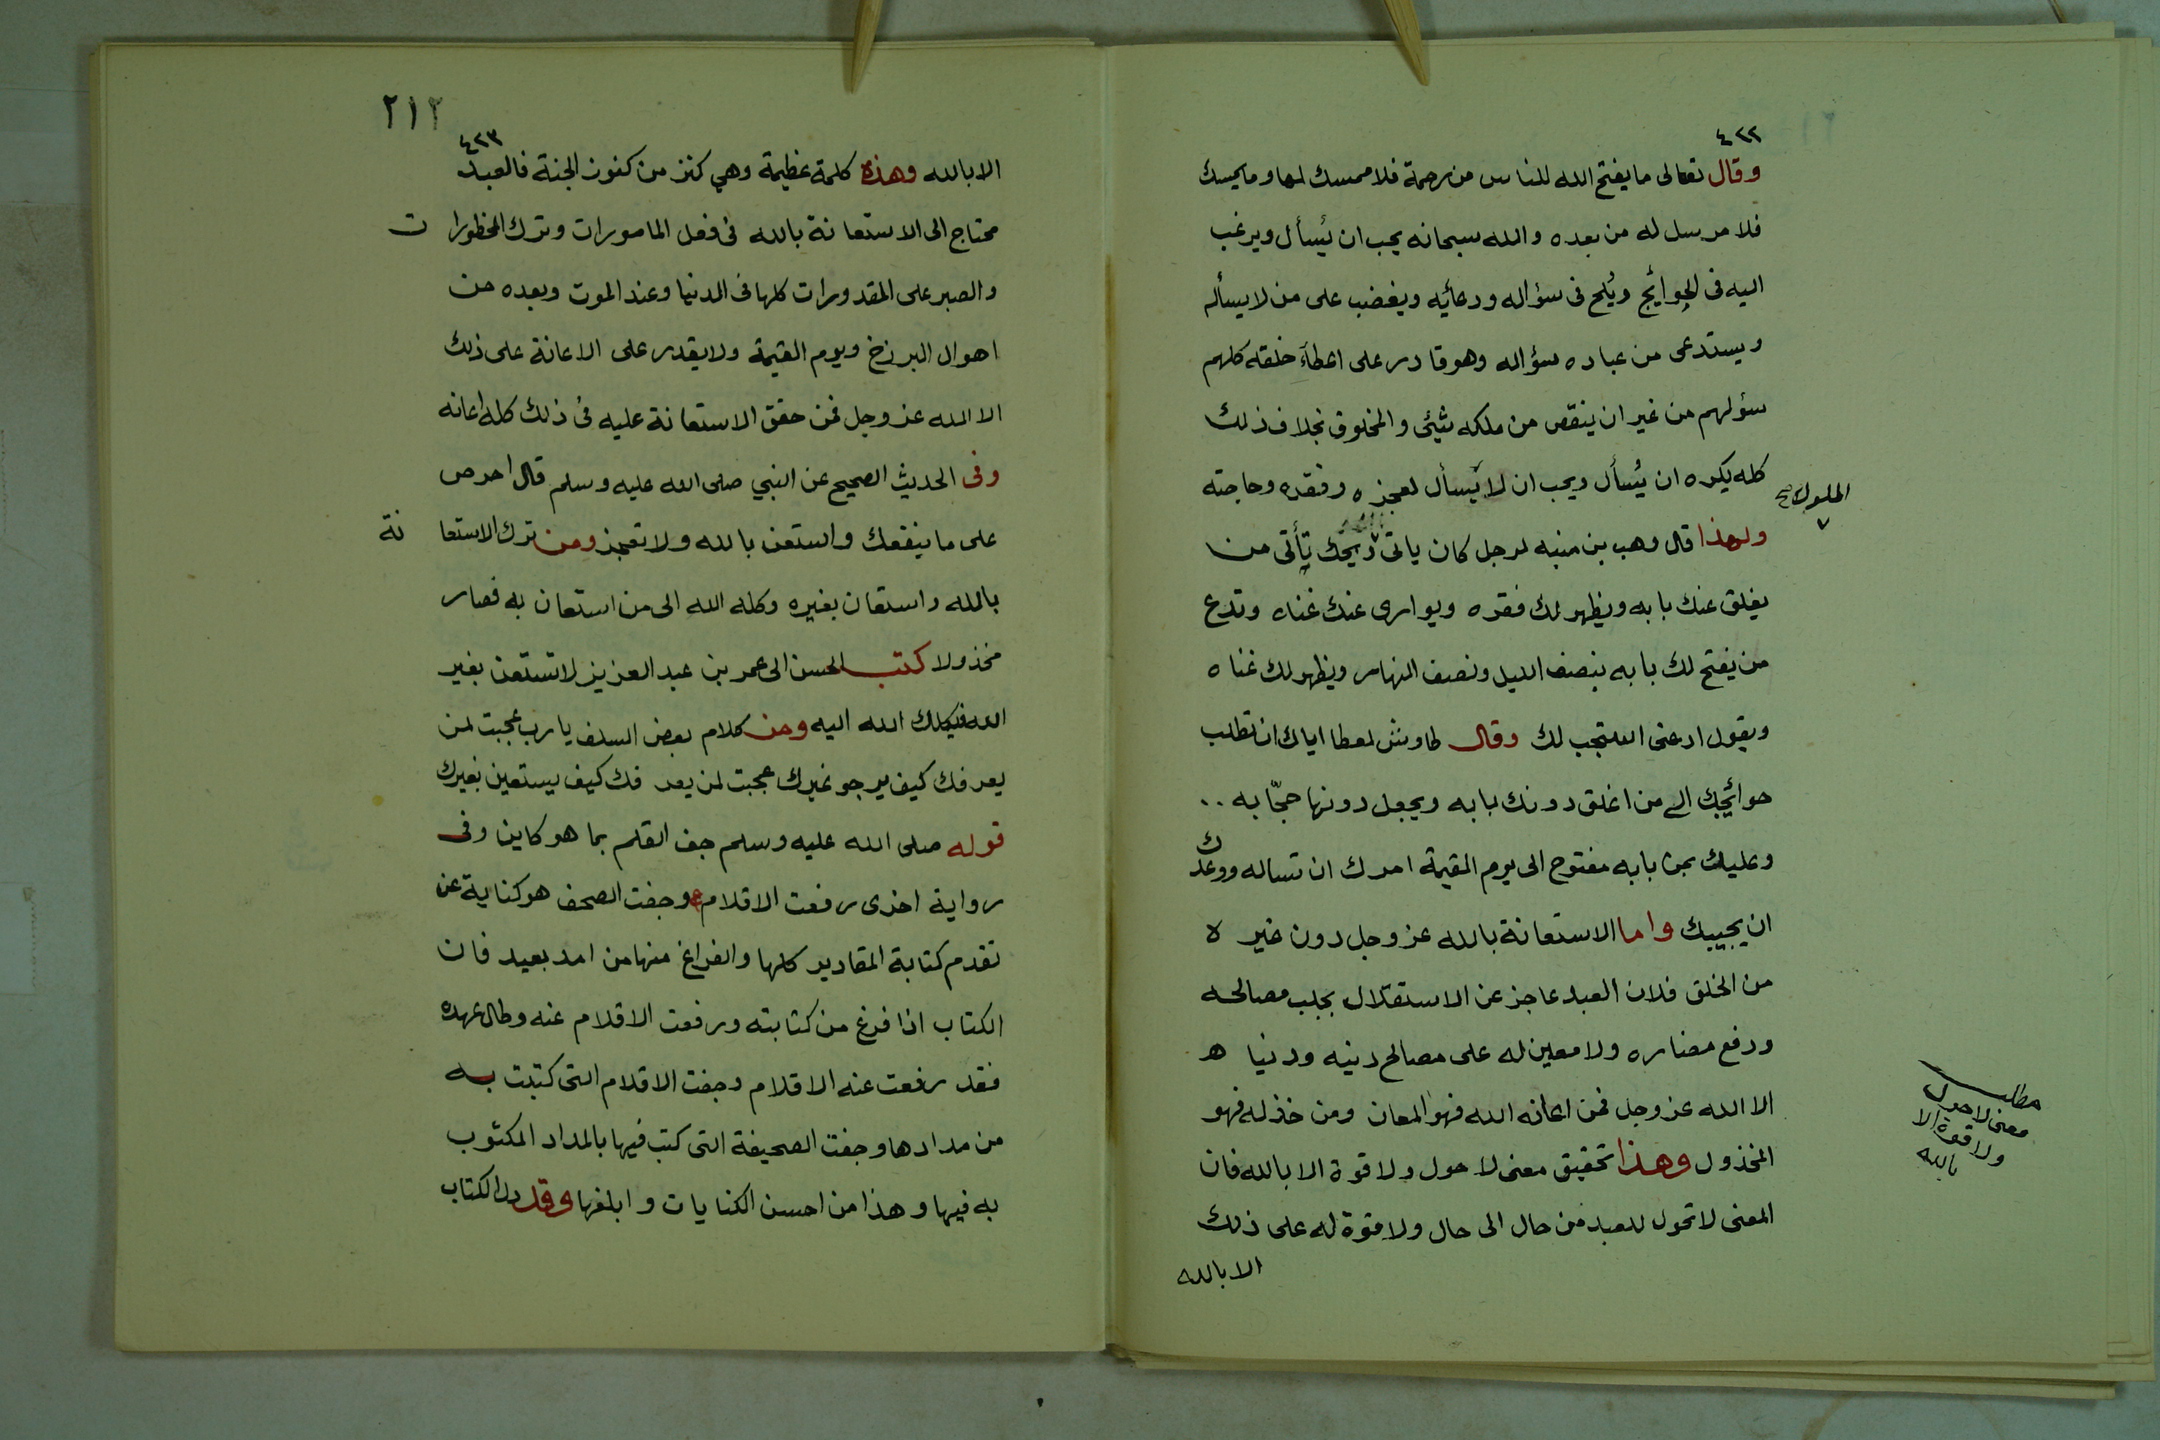 ٤٢٢
وقال تعالى ما يفتح الله للناس من رحمة فلا ممسك لها وما يمسك
فلا مرسل له من بعده والله سبحانه يحب ان يُسأل ويرغب
اليه فى الحوائج ويُلح فى سؤاله ودعائه ويغضب على من لا يسأله
ويستدعى من عباده سؤاله وهو قادر على اعطآء خلقه كلهم
سؤلهم من غير ان ينقص من ملكه شيئ والمخلوق بخلاف ذلك
كله يكره ان يُسأل ويحب ان لا يُسأل لعجزه وفقره وحاجته
ولهذا قال وهب بن منبه لرجل كان ياتى ويحك تأتى من
الملوك صح
يغلق عنك بابه ويظهر لك فقره ويوارى عنك غناه وتدع
من يفتح لك بابه بنصف الليل ونصف النهار ويظهر لك غناه
ويقول ادعنى استجب لك وقال طاوس لعطا اياك ان تطلب
حوائجك الى من اغلق دونك بابه ويجعل دونها حجّابه ..
وعليك بمن بابه مفتوح الى يوم القيمة امرك ان تساله ووعدك
ان يجيبك واما الاستعانة بالله عز وجل دون غيره
من الخلق فلان العبد عاجز عن الاستقلال بجلب مصالحه
ودفع مضاره ولا معين له على مصالح دينه ودنياه
الا الله عز وجل فمن اعانه الله فهو المعان ومن خذله فهو
المخذول وهذا تحقيق معنى لا حول ولا قوة الا بالله فان
المعنى لا تحول للعبد من حال الى حال ولا قوة له على ذلك
الا بالله
مطلب
معنى لا حول
ولا قوة الا
بالله
٢١٢
٤٢٣
الا بالله وهذه كلمة عظيمة وهي كنز من كنوز الجنة فالعبد
محتاج الى الاستعانة بالله فى فعل المامورات وترك المحظورات
والصبر على المقدورات كلها فى الدنيا وعند الموت وبعده من
اهوال البرزخ ويوم القيمة ولا يقدر على الاعانة على ذلك
الا الله عز وجل فمن حقق الاستعانة عليه فى ذلك كله اعانه
وفى الحديث الصحيح عن النبي صلى الله عليه وسلم قال احرص
على ما ينفعك واستعن بالله ولا تعجز ومن ترك الاستعانة
بالله واستعان بغيره وكله الله الى من استعان به فصار
مخذولا كتب الحسن الى عمر بن عبد العزيز لا تستعن بغير
الله فيكلك الله اليه ومن كلام بعض السلف يا رب عجبت لمن
يعرفك كيف يرجو غيرك عجبت لمن يعرفك كيف يستعين بغيرك
قوله صلى الله عليه وسلم جف القلم بما هو كاين وفى
رواية اخرى رفعت الاقلام وجفت الصحف هو كناية عن
تقدم كتابة المقادير كلها والفراغ منها من امد بعيد فان
الكتاب اذا فرغ من كتابته ورفعت الاقلام عنه وطال عهده
فقد رفعت عنه الاقلام وجفت الاقلام التى كتبت به
من مدادها وجفت الصحيفة التى كتب فيها بالمداد المكتوب
به فيها وهذا من احسن الكنايات وابلغها وقد دل الكتاب